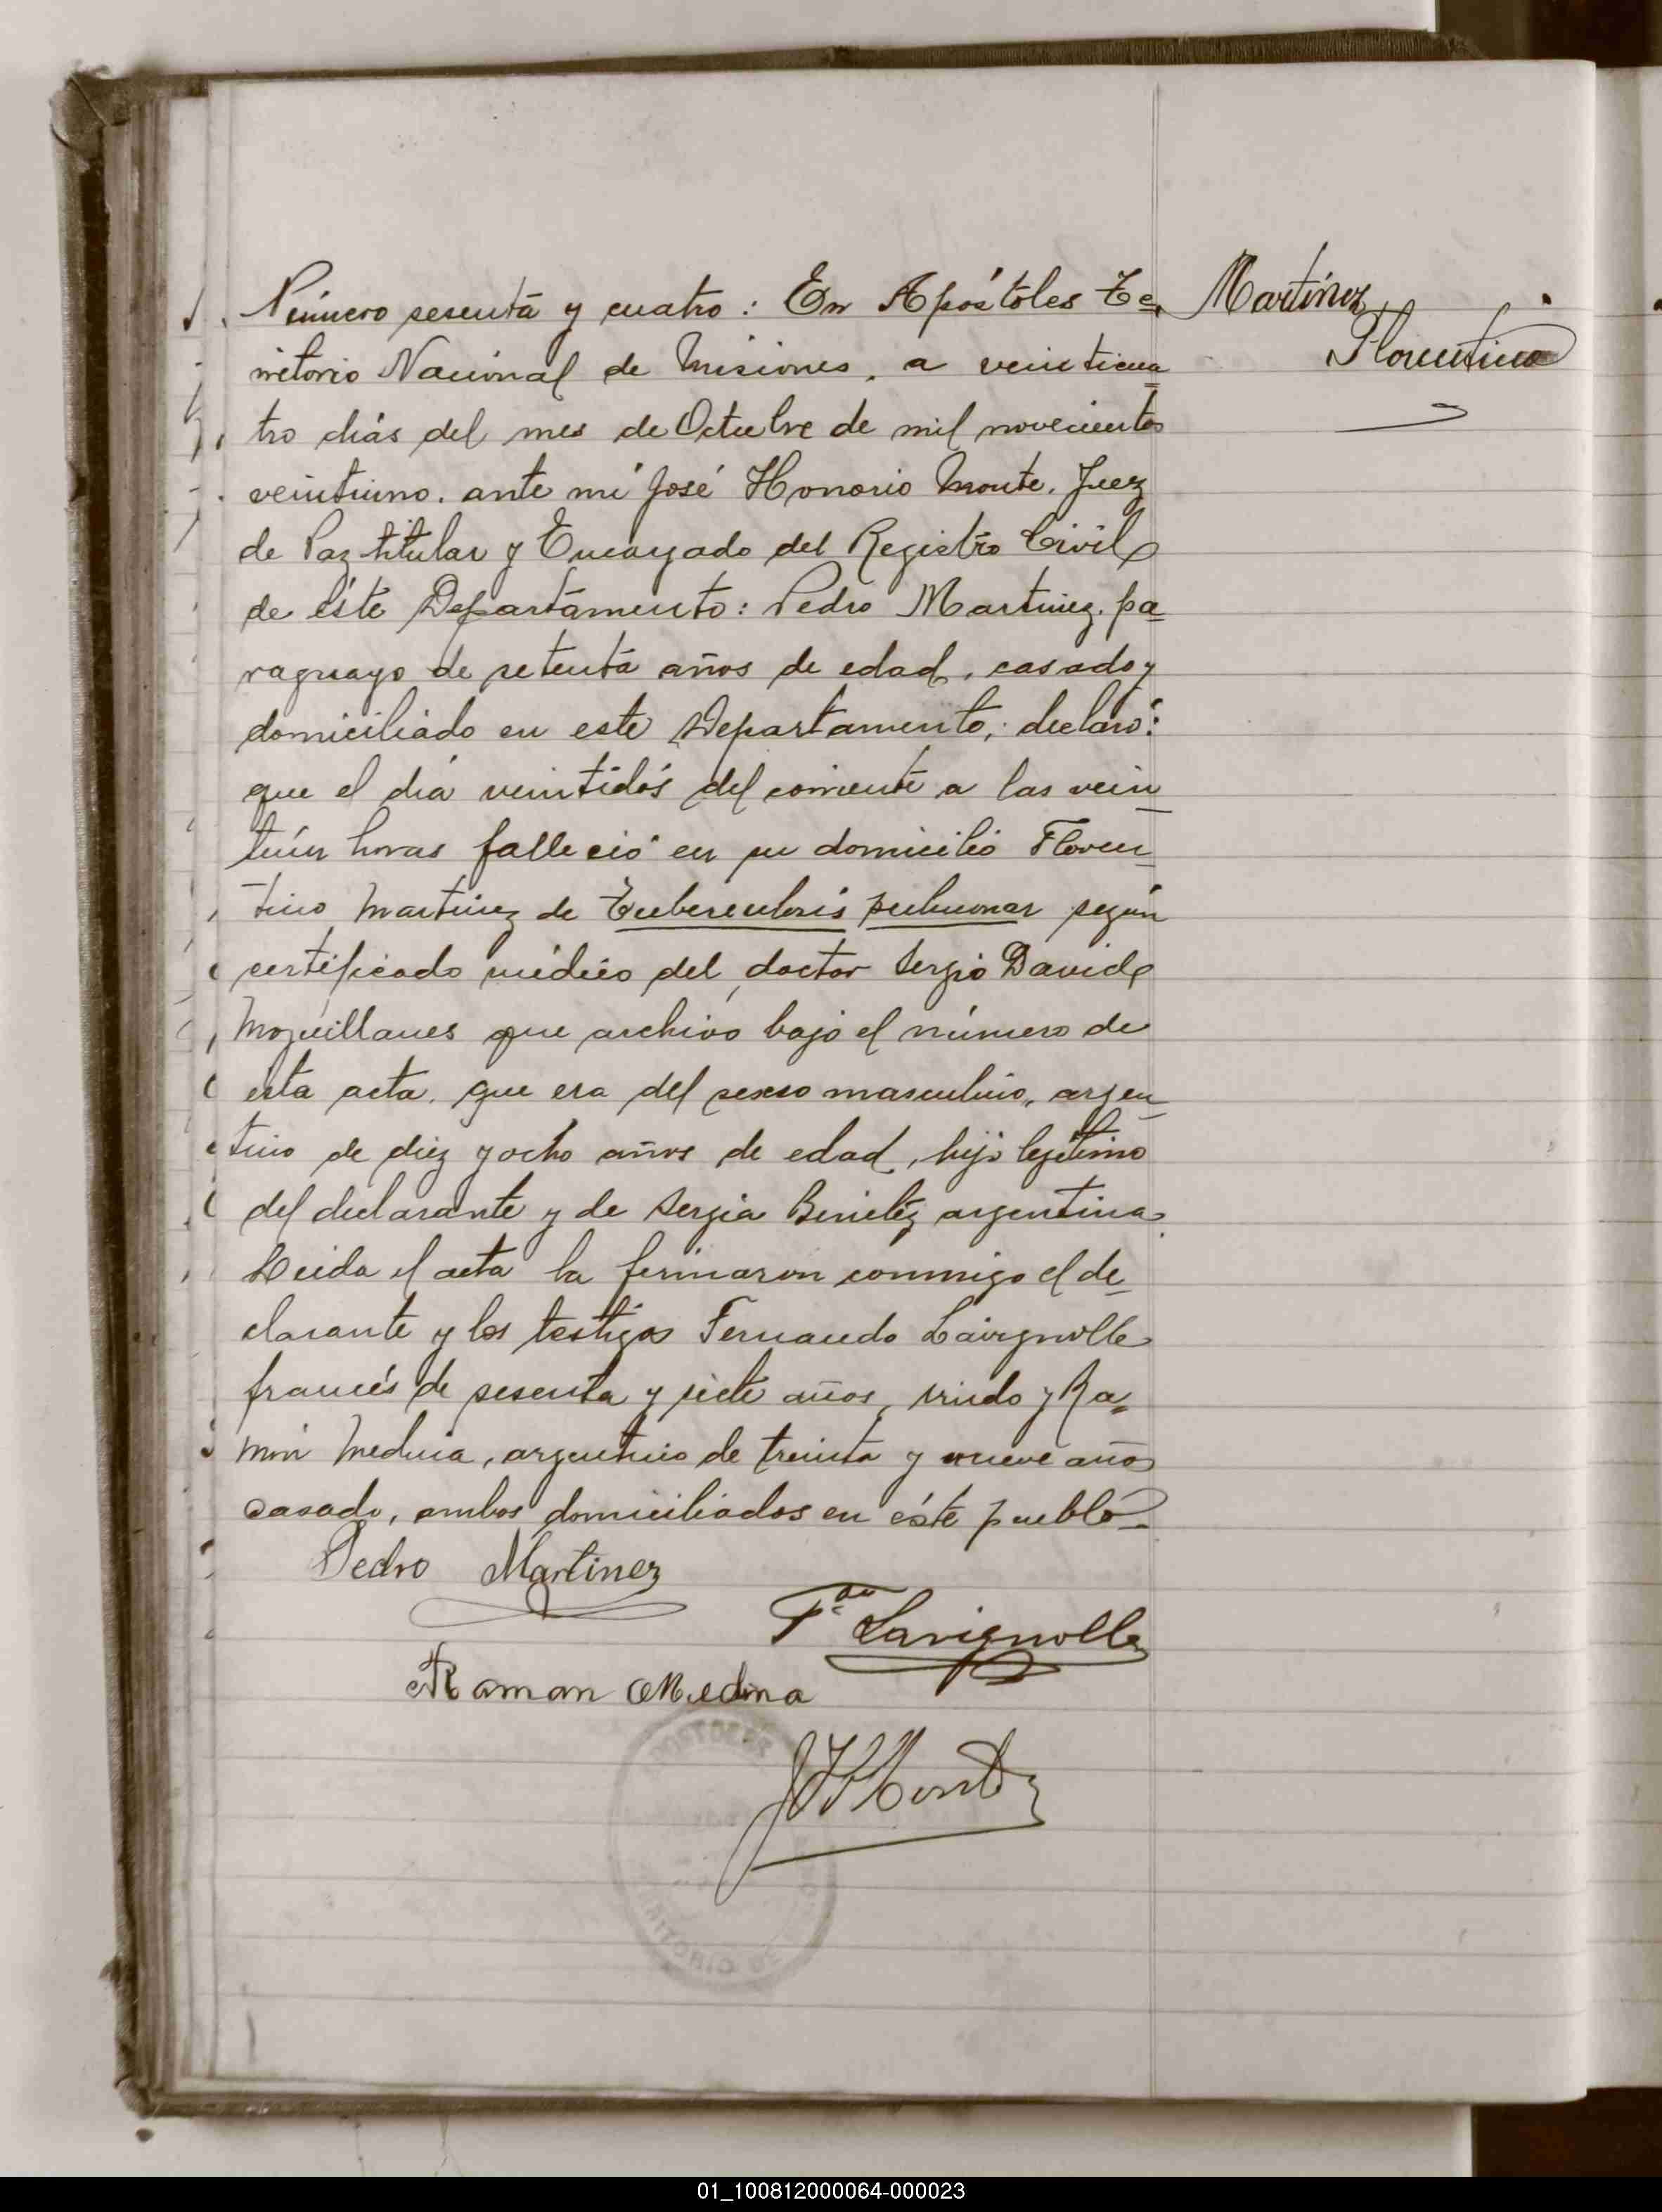 Número sesenta y cuatro: En Apóstoles Te-
rritorio Nacional de Misiones, a veinticua-
tro días del mes de Octubre de mil novecientos
veintiuno, ante mí José Honorio Monte, Juez
de Paz titular y Encargado del Registro Civil
de éste Departamento: Pedro Martinez, pa-
raguayo de setenta años de edad, casado y
domiciliado en este Departamento, declaró:
que el día veintidós del corriente a las vein-
tiún horas falleció en su domicilio Floren-
tino Martinez de Tuberculosis pulmonar según
certificado médico del doctor Sergio David
Moyeillanes que archivo bajo el número de
esta acta, que era del sexso masculino, argen-
tino de diez y ocho años de edad, hijo legítimo
del declarante y de Sergia Benitez argentina.
Leida el acta la firmaron conmigo el de-
clarante y los testigos Fernando Lavignolle
francés de sesenta y siete años, viudo y Ra-
món Medina, argentino de treinta y nueve años
casado, ambos domiciliados en éste pueblo-
Martínez
Florentino
Pedro Martinez
F.do Lavignolle
Raman Medina
JHMonte
01_100812000064-000023